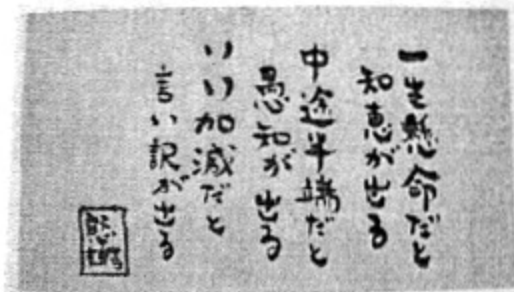 一生懸命だと
知恵が出る
中途半端だと
愚知が出る
いい加減だと
言い訳が出る